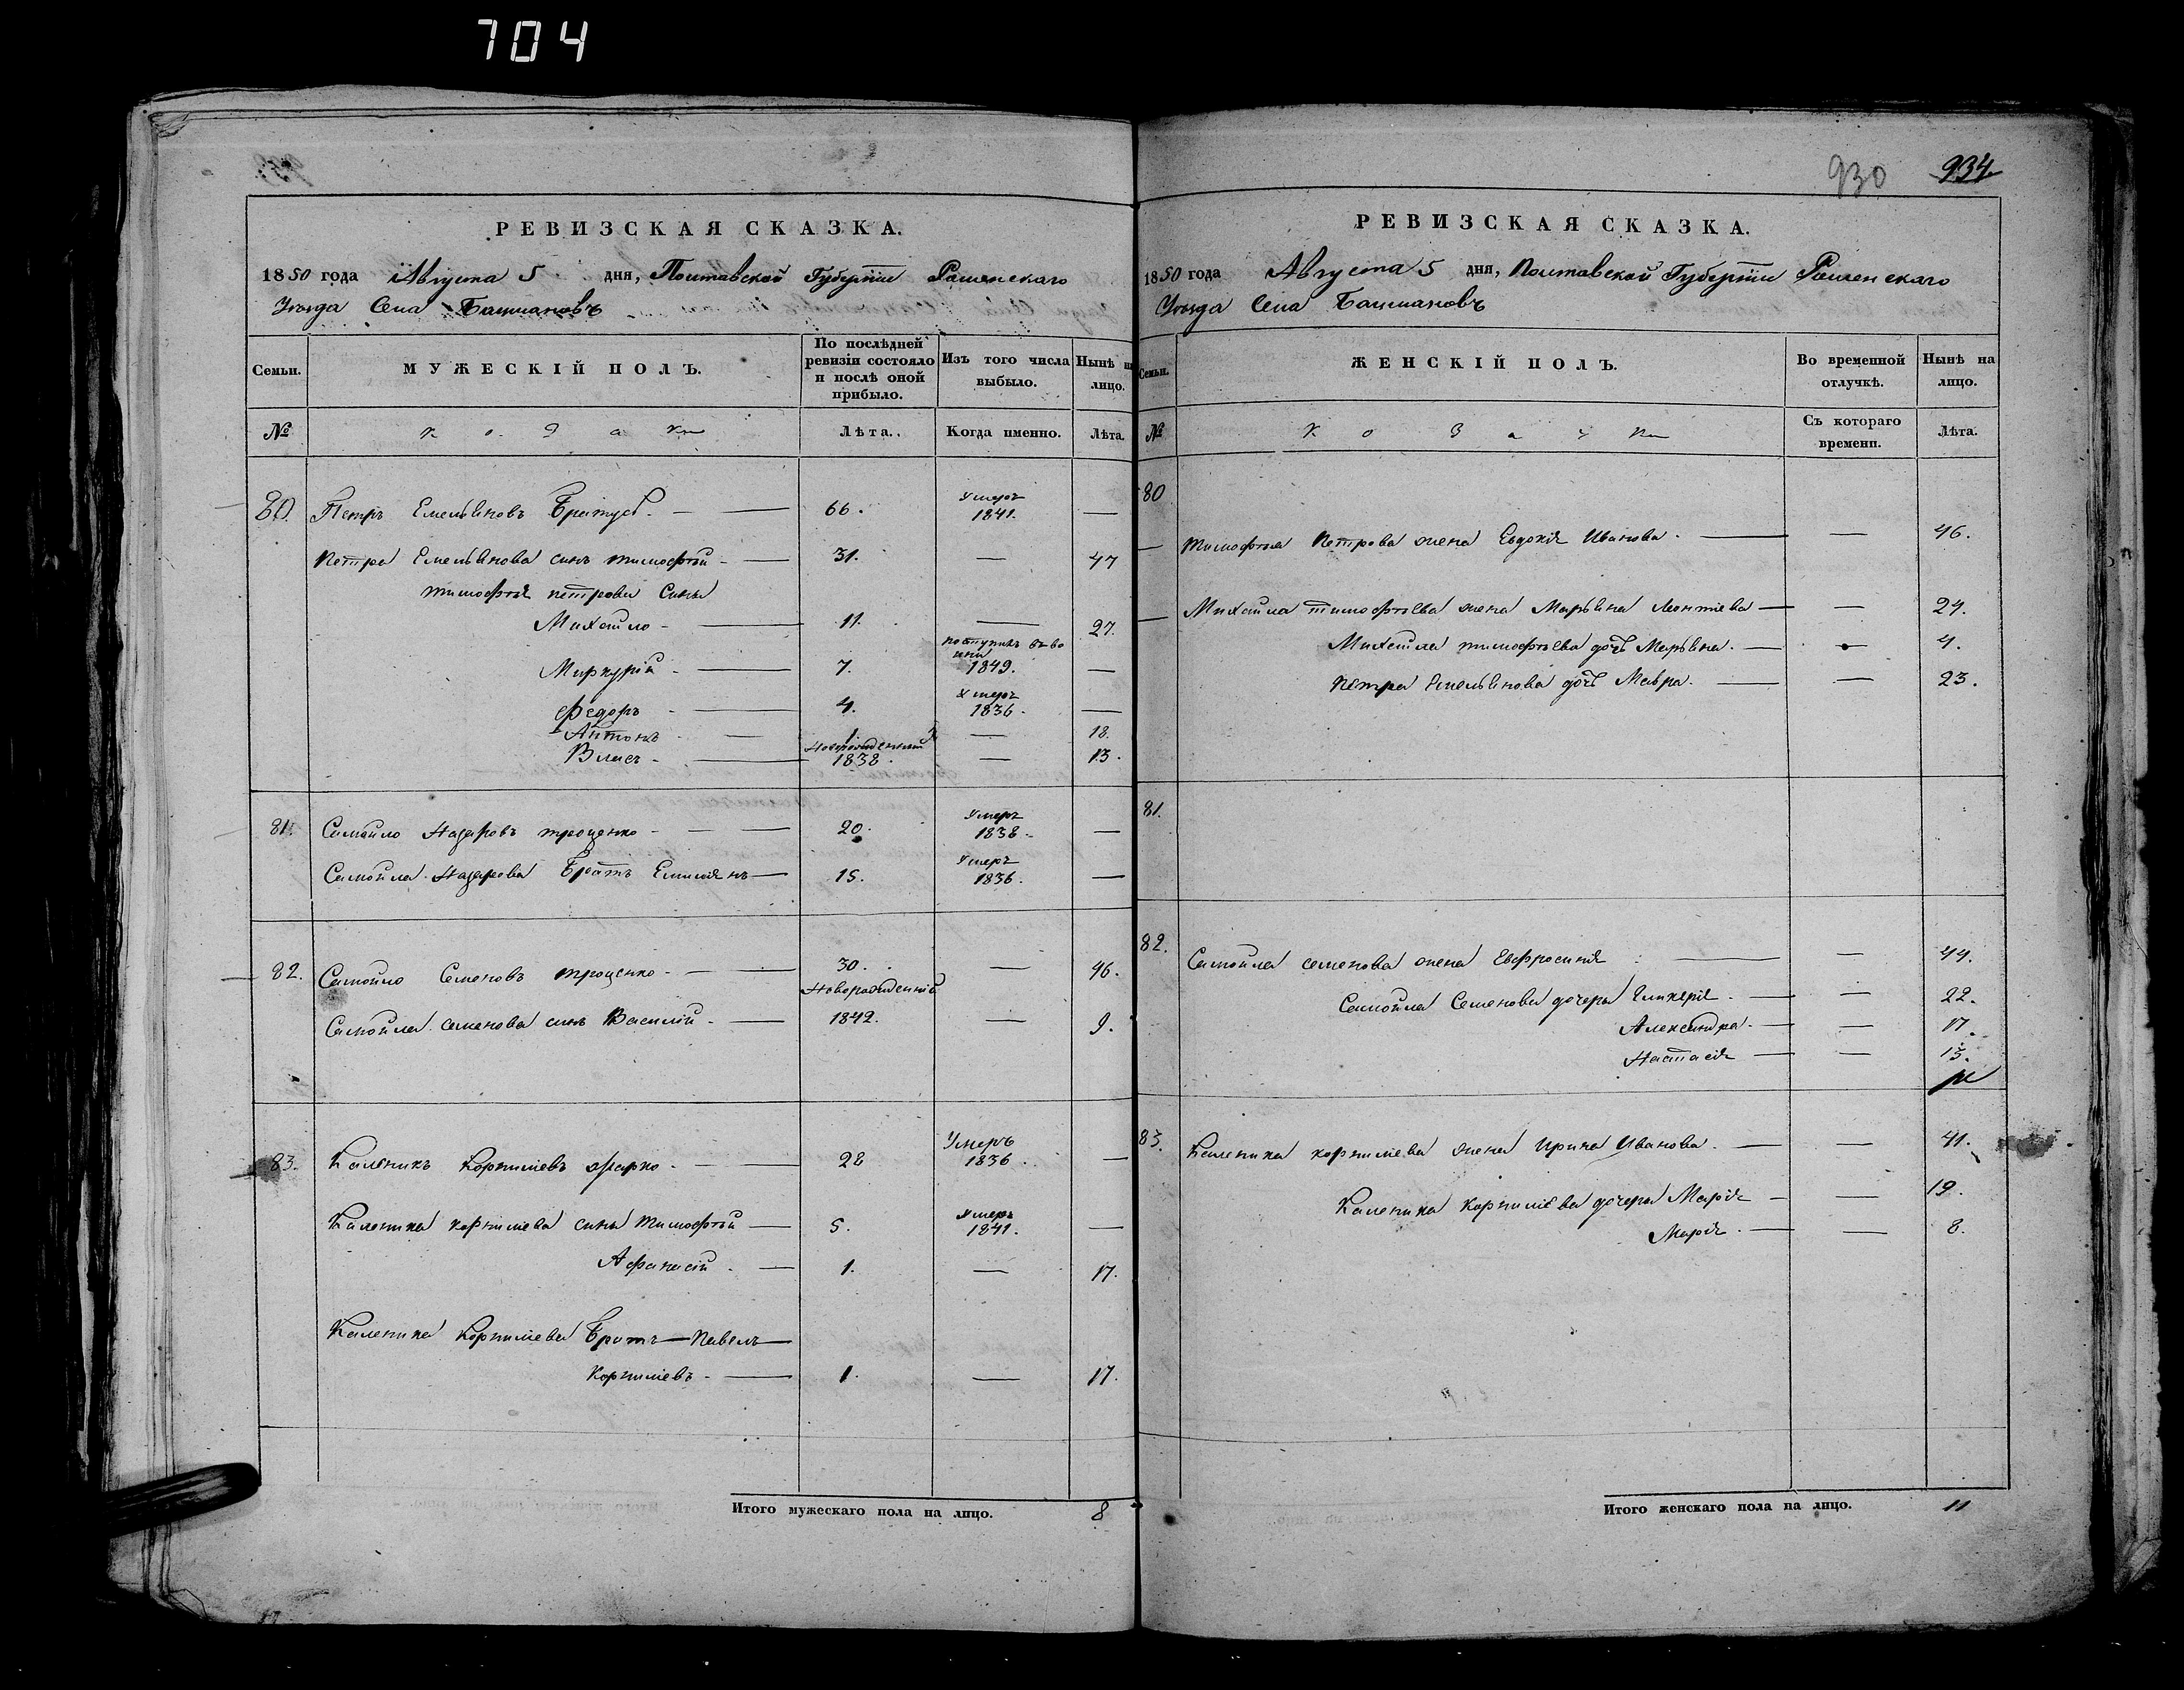 704
930 934
РЕВИЗСКАЯ СКАЗКА.
1850 года Августа 5 дня, Полтавской Губерніи Роменскаго
Уѣзда Села Башмановъ
Семьи. МУЖЕСКІЙ ПОЛЪ. По послѣдней ревизіи состояло и послѣ оной прибыло. Изъ того числа выбыло. Нынѣ на лицо.
№ Козаки Лѣта. Когда именно. Лѣта.
80. Петръ Емельяновъ Братусь. — 66. Умеръ 1841. —
Петра Емельянова сынъ Тимофѣй — 31. — 47
Тимофѣя Петрова сыны
Михайло — 11. — 27.
Миркурій — 7. поступилъ 1849. —
Федоръ — 4. Умеръ 1836. —
Антонъ — 1. — 18.
Власъ — Новорожденный 1838. — 13.
81. Самойло Назаровъ Троценко — 20. Умеръ 1838. —
Самойла Назарова Братъ Емилянъ — 15. Умеръ 1836. —
82. Самойло Семеновъ Троценко — 30. — 46.
Самойла Семенова сынъ Василій — Новорожденній 1842. — 9.
83. Каленикъ Корниліевъ — 28 Умеръ 1836. —
Каленика Корниліева сины Тимофѣй — 5. Умеръ 1841. —
Афанасій — 1. — 17.
Каленика Корниліева Братъ — Павелъ —
Корниліевъ — 1. — 17.
Итого мужескаго пола на лицо. 8
РЕВИЗСКАЯ СКАЗКА.
1850 года Августа 5 дня, Полтавской Губерніи Роменскаго
Уѣзда Села Башмановъ
Семьи. ЖЕНСКІЙ ПОЛЪ. Во временной отлучкѣ. Нынѣ на лицо.
№ Козачки Съ котораго времени. Лѣта.
80
Тимофѣя Петрова жена Евдокія Иванова. — — 46.
Михайла Тимофѣева жена Марьяна Леонтіева — — 24.
Михайла Тимофѣева дочь Марьяна. — — 4.
Петра Емельянова дочь Мавра. — — 23.
81.
82. Самойла Семенова жена Евфросинія — — 44.
Самойла Семенова дочери Гликерія — — 22.
Александра — — 17.
Настасія — — 13.
83. Каленика Корниліева жена Ирина Иванова. — — 41.
Каленика Корниліева дочери Марія — — 19.
Марія — — 8.
Итого женскаго пола на лицо. 11